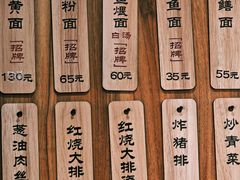 黄面
[招牌]
130元
粉面
[招牌]
65元
煨面
白汤
[招牌]
60元
鱼面
[招牌]
35元
鳝面
55元
葱油肉丝
红烧大排
红烧大排
炸猪排
炒青菜